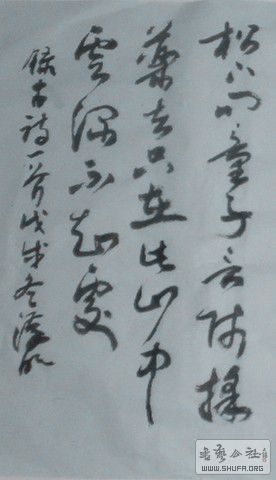 松下问童子言师采
药去只在此山中
云深不知处
录古诗一首戊戌冬
书艺公社
WWW.SHUFA.ORG